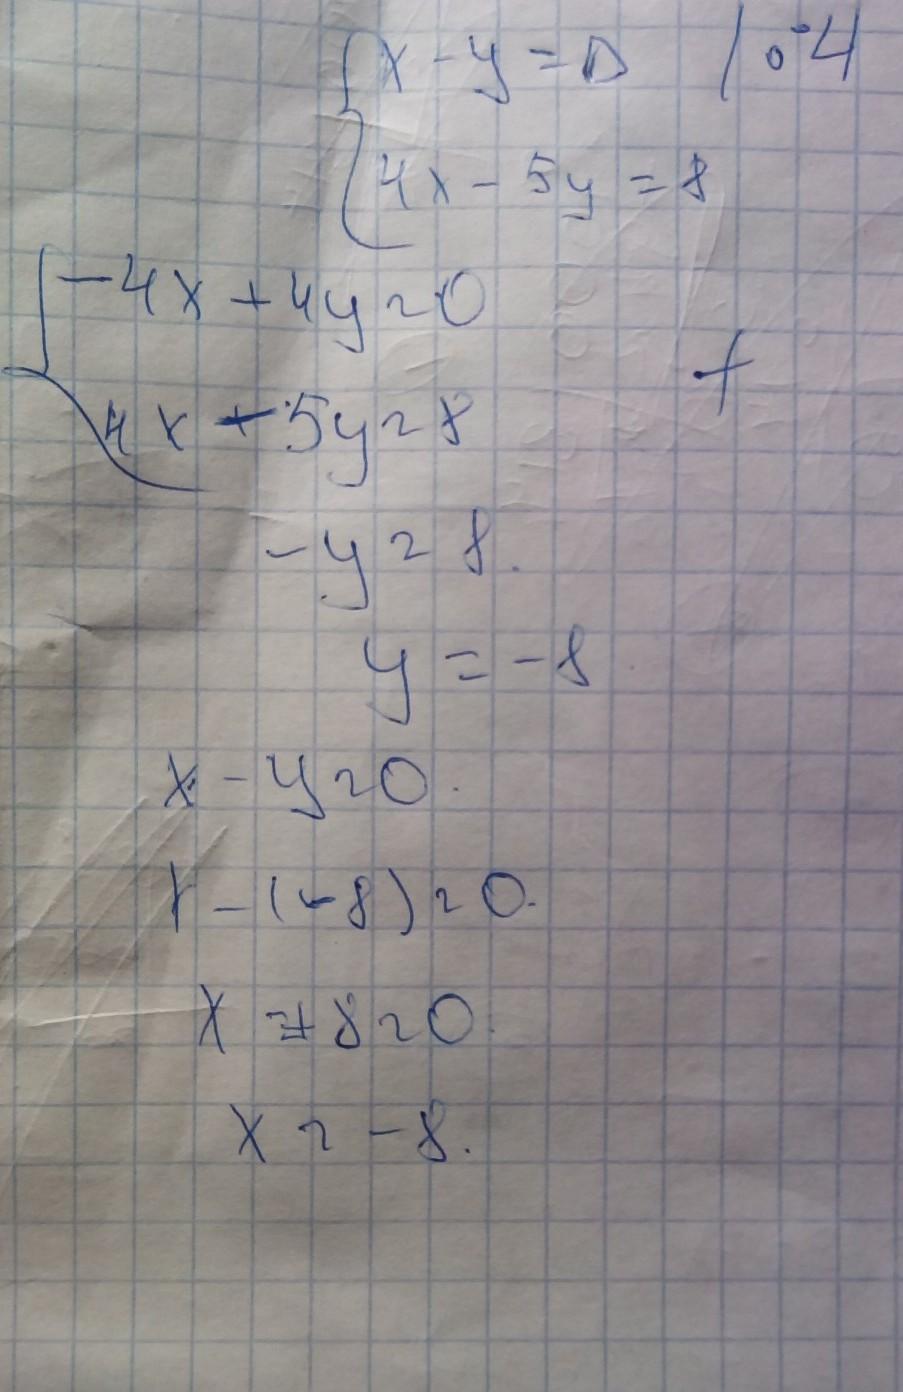 x - y = 0 | · -4
4x - 5y = 8
-4x + 4y = 0
+
4x - 5y = 8
-y = 8.
y = -8
x - y = 0.
x - (-8) = 0.
x + 8 = 0.
x = -8.